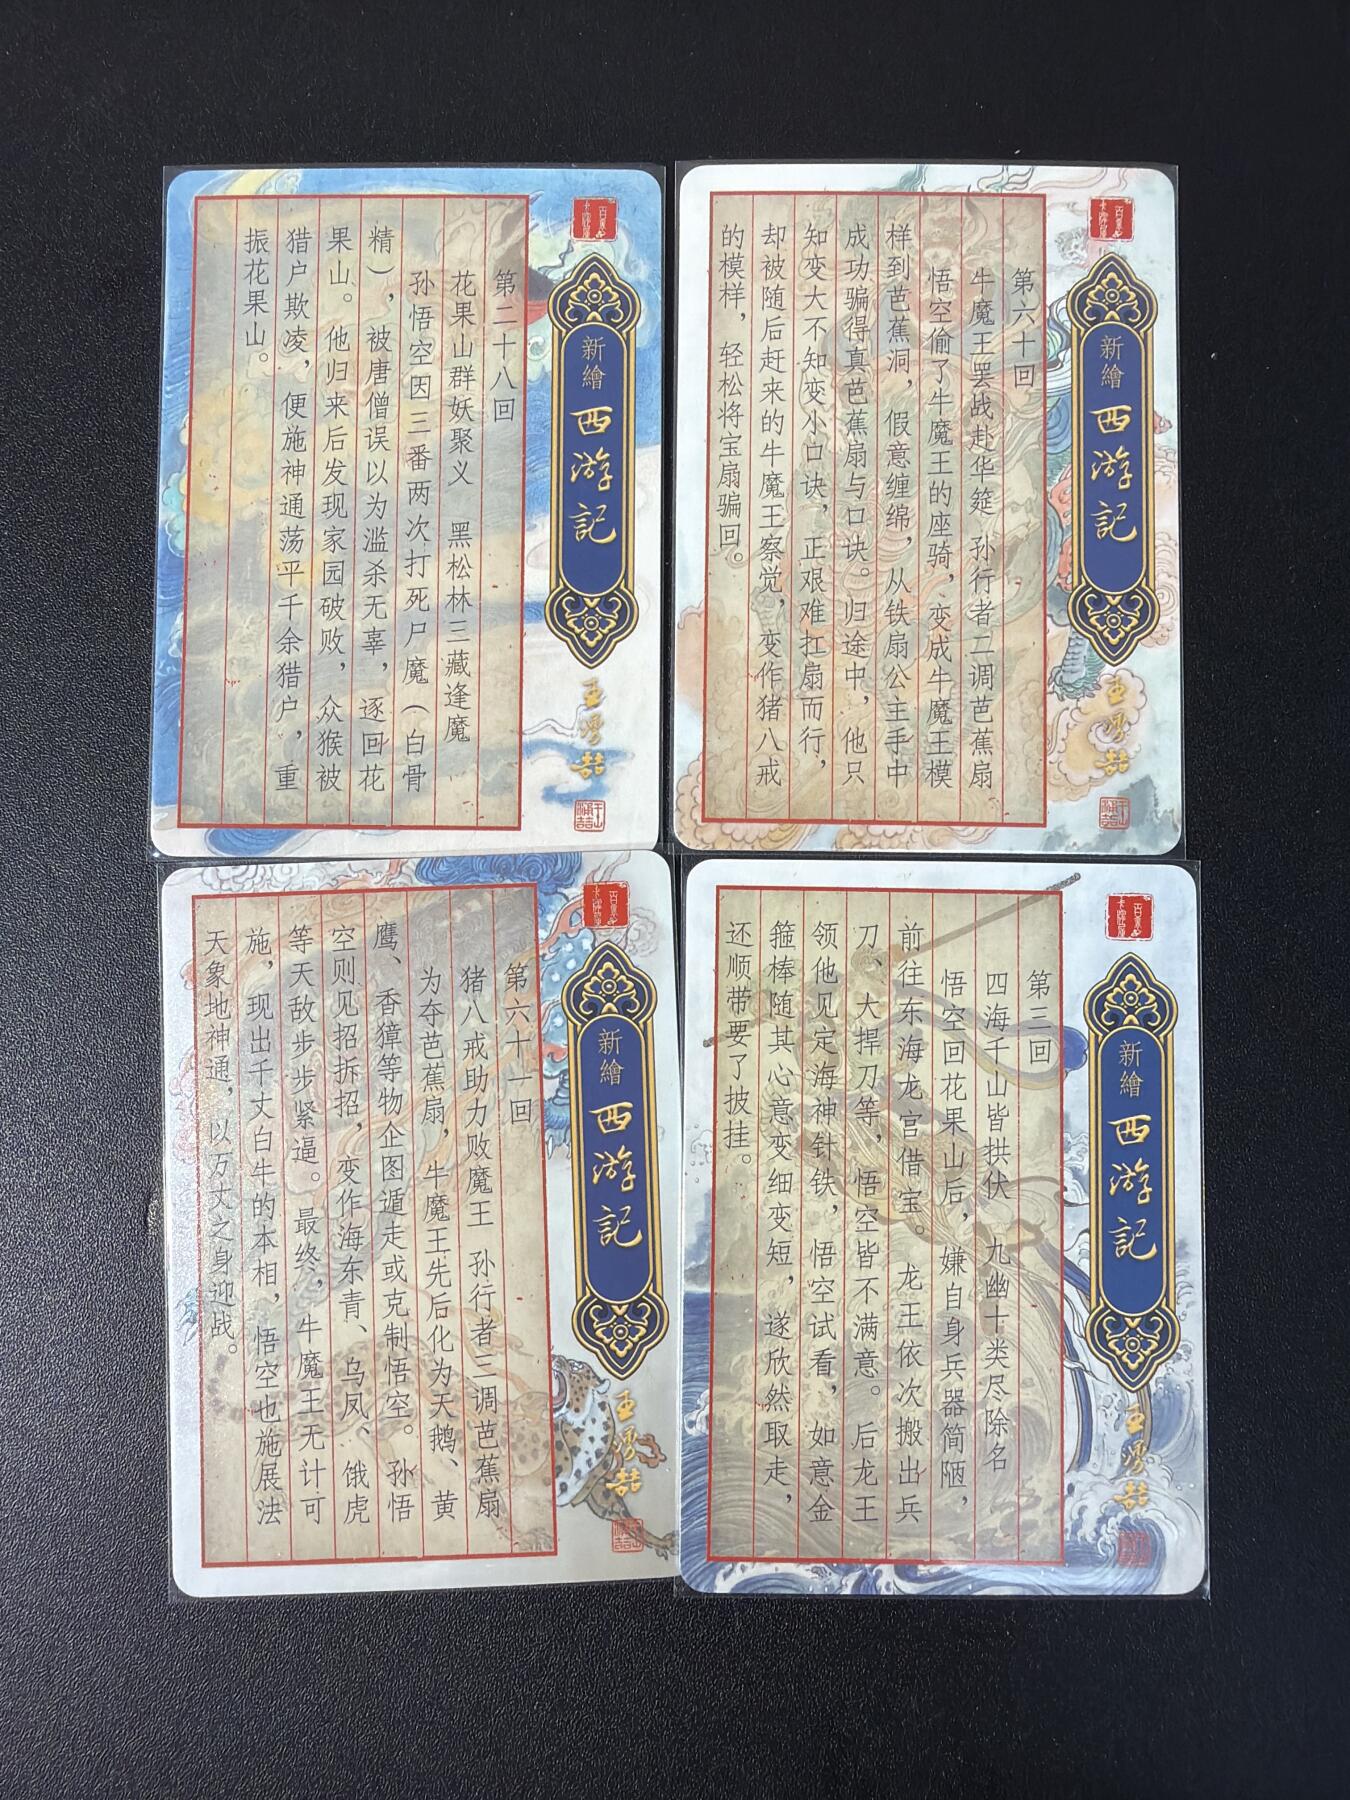 新繪
西游記
第二十八回
花果山群妖聚义　黑松林三藏逢魔
孙悟空因三番两次打死尸魔（白骨
精），被唐僧误以为滥杀无辜，逐回花
果山。他归来后发现家园破败，众猴被
猎户欺凌，便施神通荡平千余猎户，重
振花果山。
新繪
西游記
第六十回
牛魔王罢战赴华筵　孙行者二调芭蕉扇
悟空偷了牛魔王的座骑，变成牛魔王模
样到芭蕉洞，假意缠绵，从铁扇公主手中
成功骗得真芭蕉扇与口诀。归途中，他只
知变大不知变小口诀，正艰难扛扇而行，
却被随后赶来的牛魔王察觉，变作猪八戒
的模样，轻松将宝扇骗回。
新繪
西游記
第六十一回
猪八戒助力败魔王　孙行者三调芭蕉扇
为夺芭蕉扇，牛魔王先后化为天鹅、黄
鹰、香獐等物企图遁走或克制悟空。孙悟
空则见招拆招，变作海东青、乌凤、饿虎
等天敌步步紧逼。最终，牛魔王无计可
施，现出千丈白牛的本相，悟空也施展法
天象地神通，以万丈之身迎战。
新繪
西游記
第三回
四海千山皆拱伏　九幽十类尽除名
悟空回花果山后，嫌自身兵器简陋，
前往东海龙宫借宝。龙王依次搬出兵
刀、大捍刀等，悟空皆不满意。后龙王
领他见定海神针铁，悟空试看，如意金
箍棒随其心意变细变短，遂欣然取走，
还顺带要了披挂。